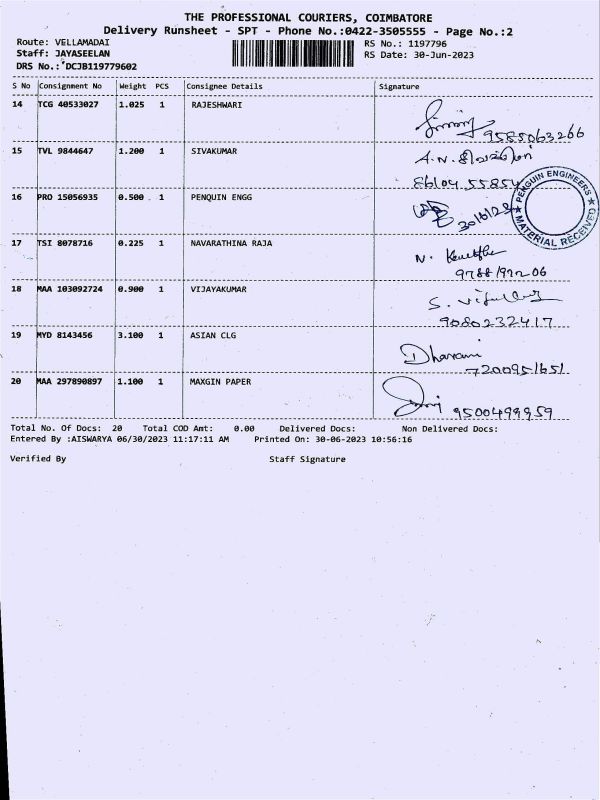 THE PROFESSIONAL COURIERS, COIMBATORE
Delivery Runsheet - SPT - Phone No.:0422-3505555 - Page No.:2
Route: VELLAMADAI
Staff: JAYASEELAN
DRS No.: DCJB119779602
RS No.: 1197796
RS Date: 30-Jun-2023
S No Consignment No Weight PCS Consignee Details Signature
14 TCG 40533027 1.025 1 RAJESHWARI
9585063266
15 TVL 9844647 1.200 1 SIVAKUMAR
16 PRO 15056935 0.500 1 PENQUIN ENGG 30/6/23
PENGUIN ENGINEERS
MATERIAL RECEIVED
17 TSI 8078716 0.225 1 NAVARATHINA RAJA N.
18 MAA 103092724 0.900 1 VIJAYAKUMAR
9080232417
19 MYD 8143456 3.100 1 ASIAN CLG Dharani
7200951651
20 MAA 297890897 1.100 1 MAXGIN PAPER
9500499959
Total No. Of Docs: 20 Total COD Amt: 0.00 Delivered Docs: Non Delivered Docs:
Entered By :AISWARYA 06/30/2023 11:17:11 AM Printed On: 30-06-2023 10:56:16
Verified By Staff Signature